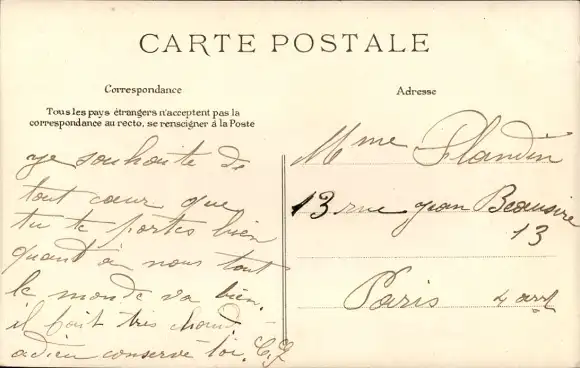 CARTE POSTALE
Correspondance
Tous les pays étrangers n'acceptent pas la
correspondance au recto, se renseigner à la Poste
je souhaite de
tout cœur que
tu te portes bien
quant à nous tout
le monde va bien,
il fait très chaud,
adieu conserve toi.
Adresse
Mme Flandin
13 rue Jean Beausire
13
Paris 4 arrt